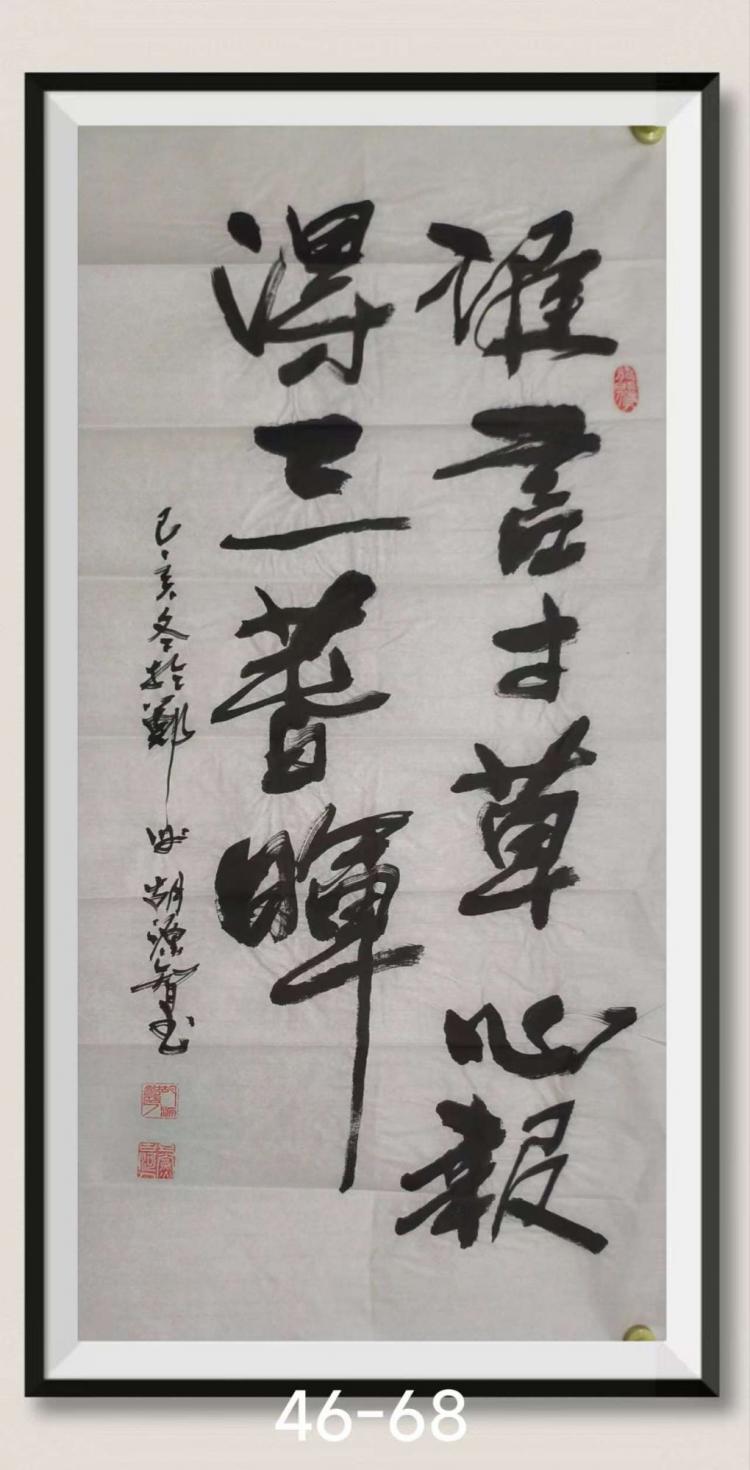 誰言寸草心報
得三春暉
己亥冬於鄭州胡源智書
46-68